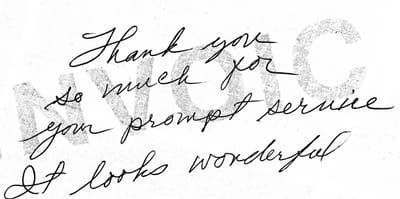 Thank you
so much for
your prompt service
It looks wonderful
NVOIC